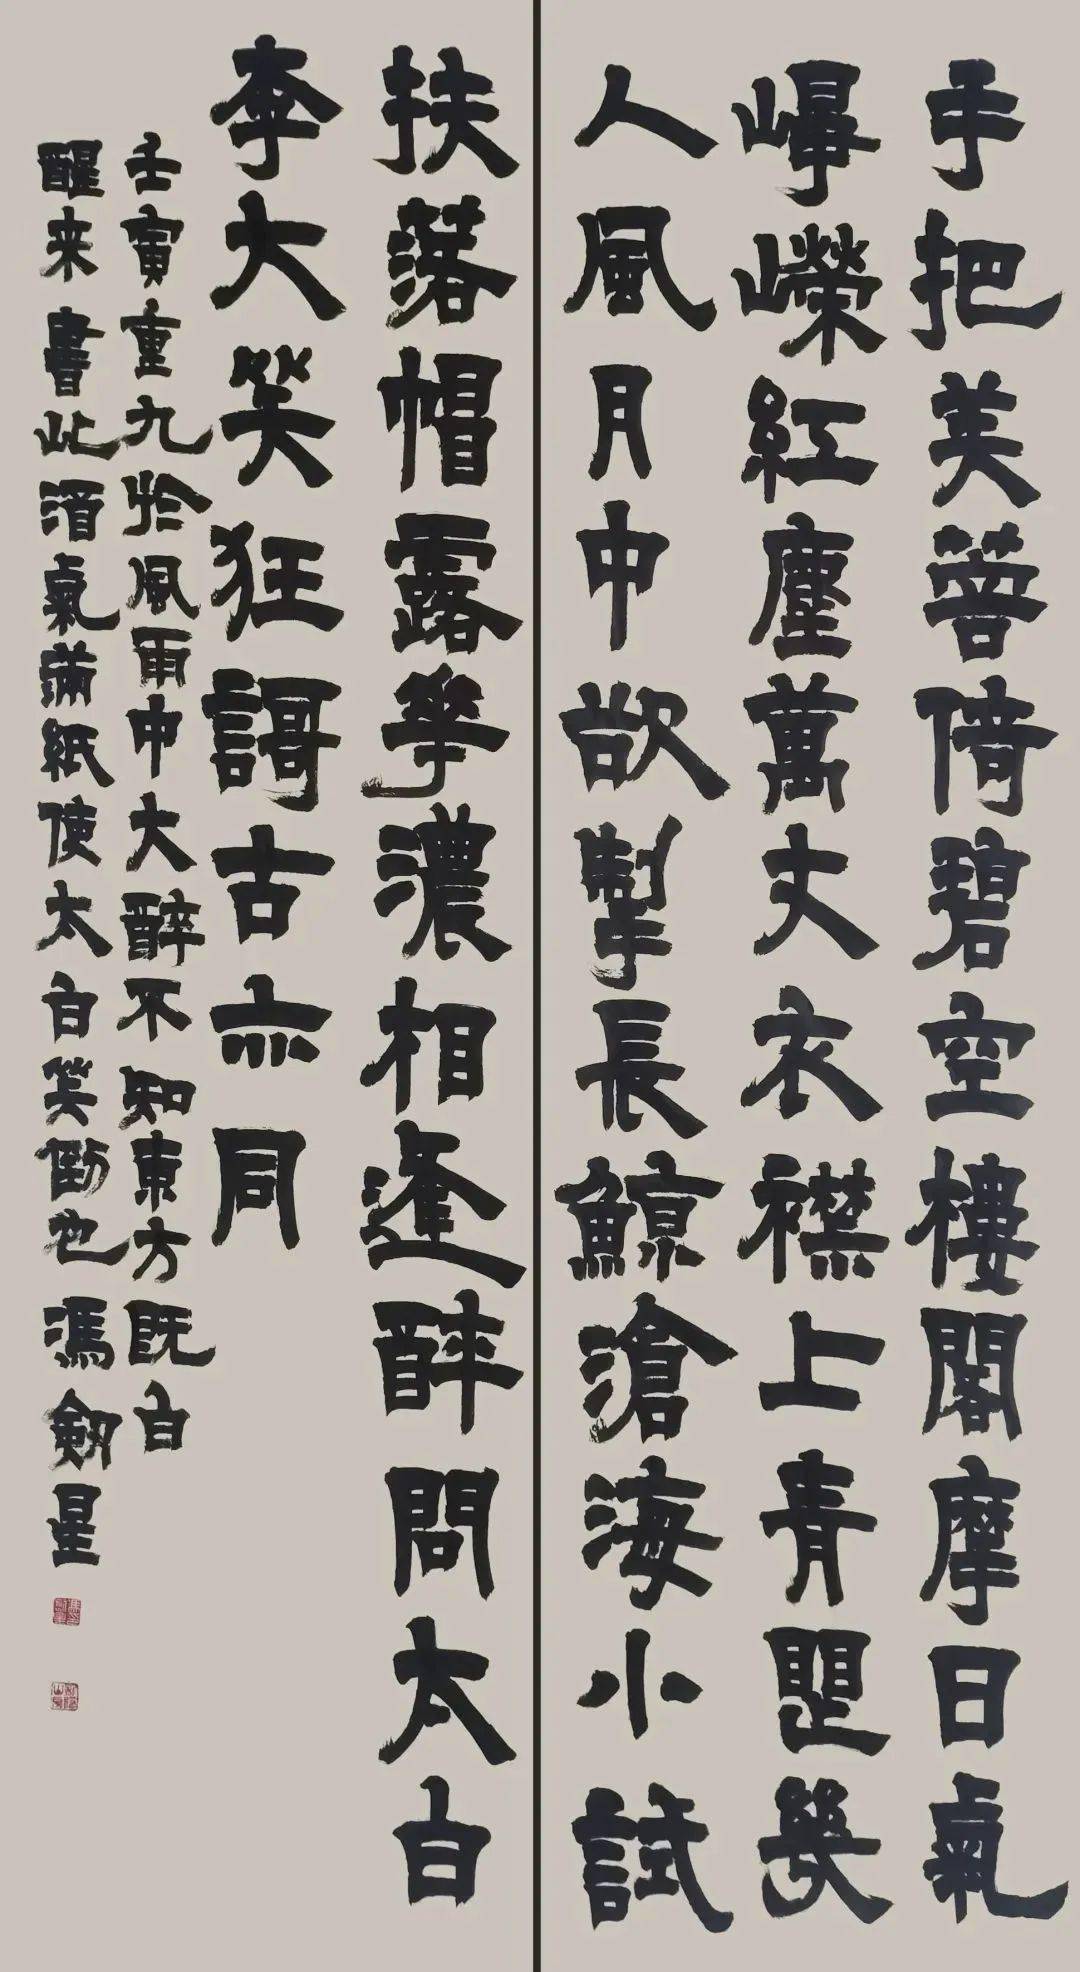 手把芙蓉倚碧空樓閣摩日氣
崢嶸紅塵萬丈衣襟上青眼幾
人風月中欲掣長鯨滄海小試
扶落帽露華濃相逢醉問太白
李大笑狂謌古亦同
壬寅重九於風雨中大醉不知東方既白
醒来書此酒氣滿紙使太白笑倒也馮劍星